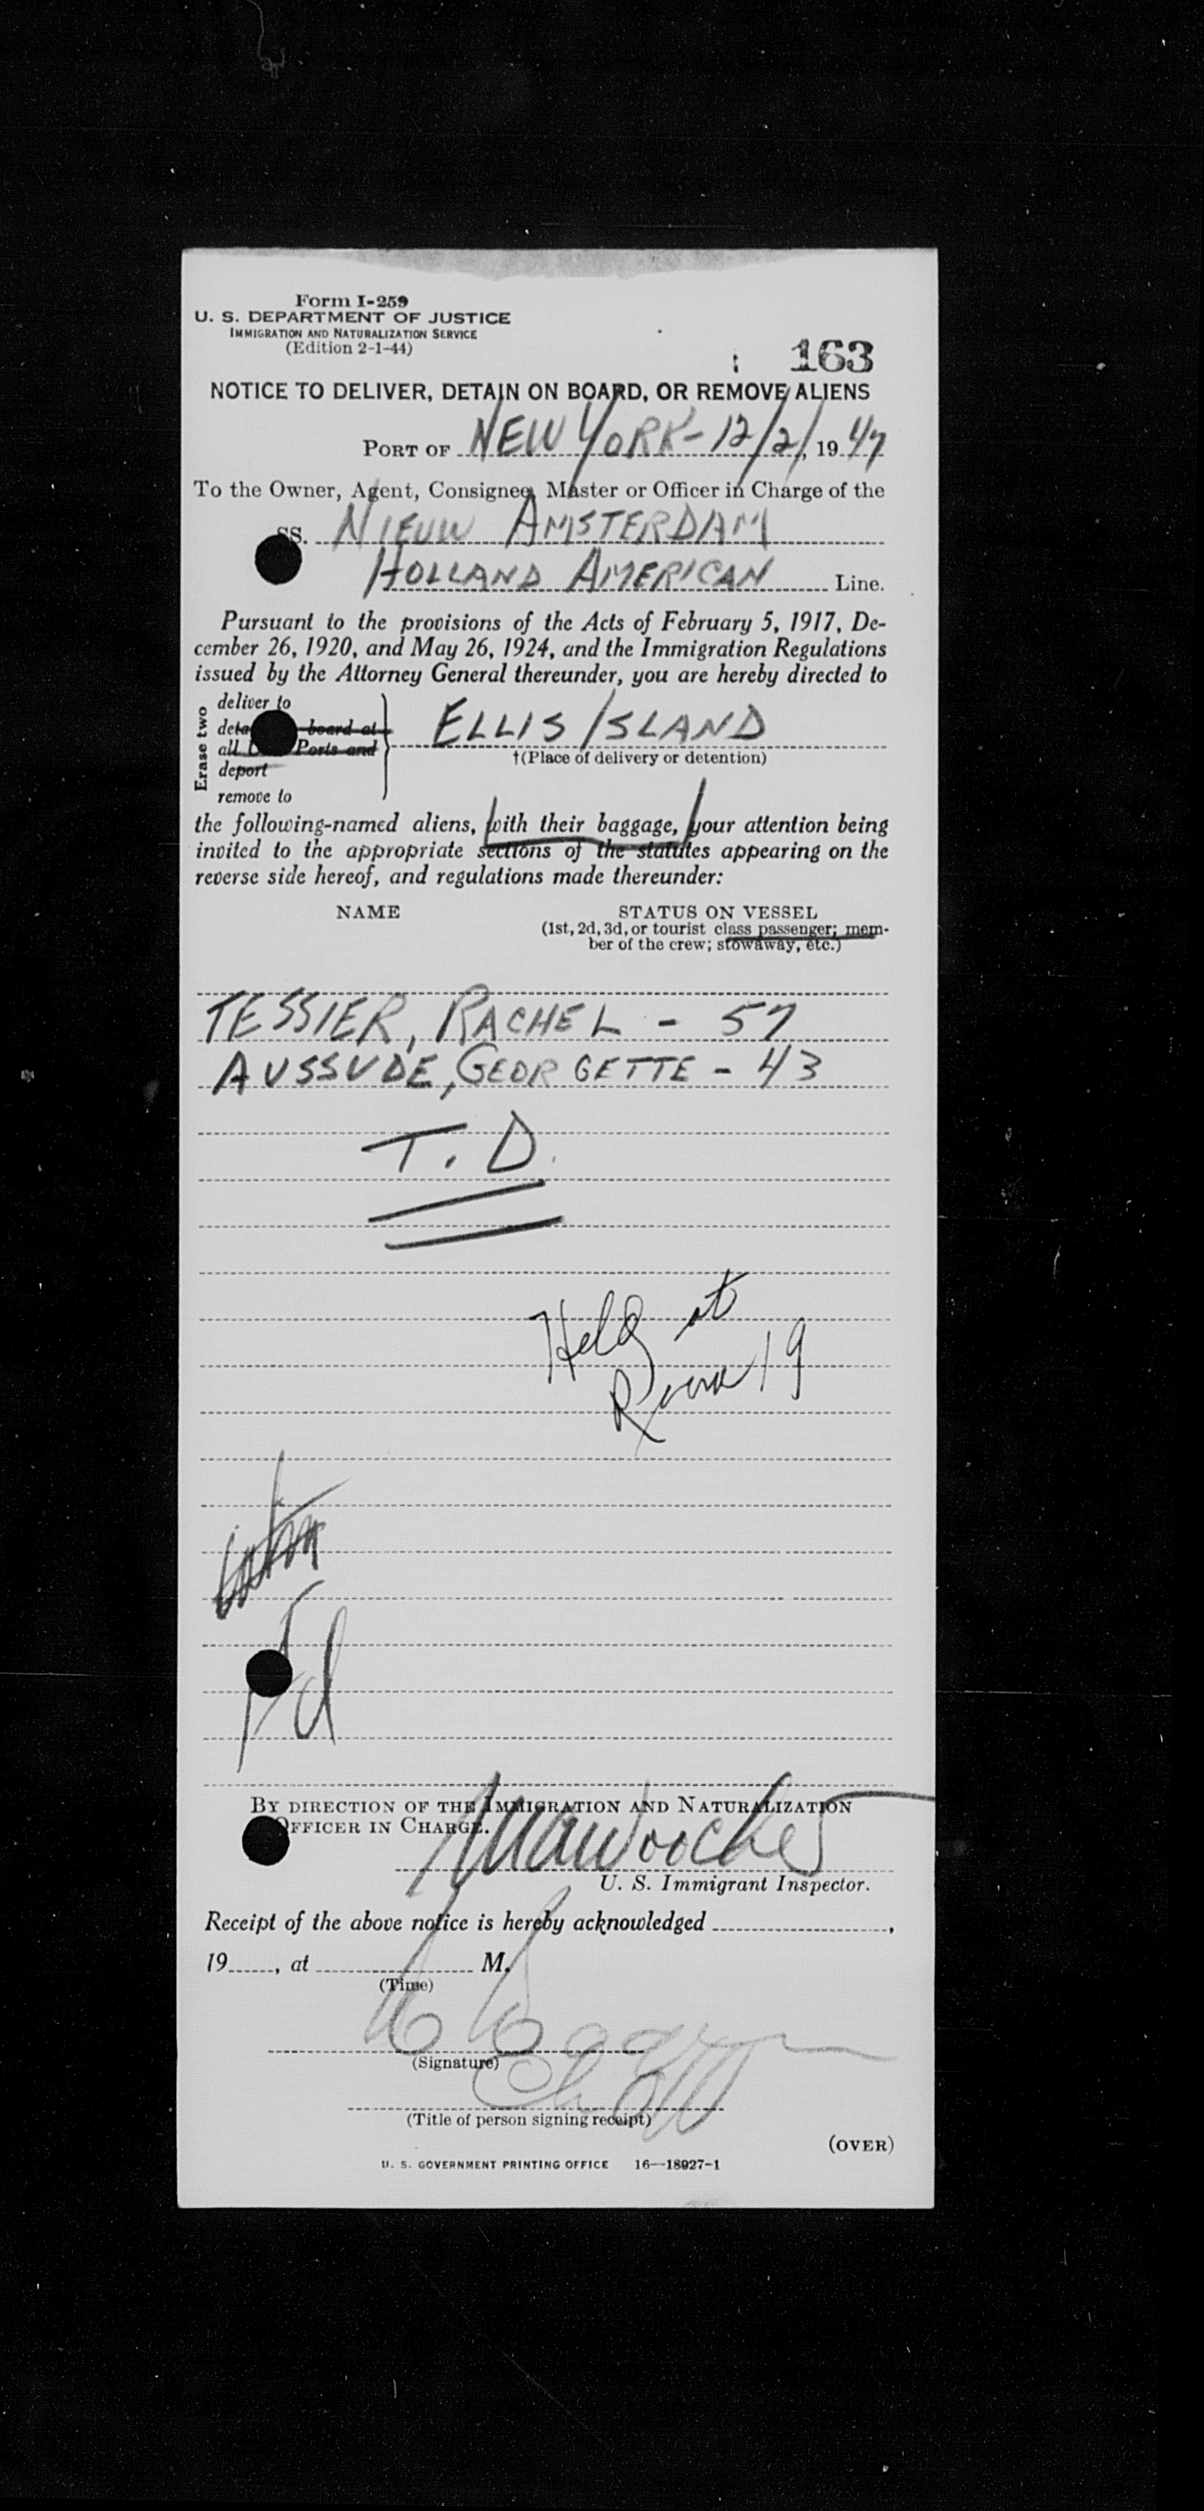 Form I-259
U. S. DEPARTMENT OF JUSTICE
IMMIGRATION AND NATURALIZATION SERVICE
(Edition 2-1-44)
163
NOTICE TO DELIVER, DETAIN ON BOARD, OR REMOVE ALIENS
PORT OF NEW YORK - 12/2/, 1947
To the Owner, Agent, Consignee, Master or Officer in Charge of the
SS. NIEUW AMSTERDAM
HOLLAND AMERICAN Line.
Pursuant to the provisions of the Acts of February 5, 1917, De-
cember 26, 1920, and May 26, 1924, and the Immigration Regulations
issued by the Attorney General thereunder, you are hereby directed to
Erase two
deliver to
board at
all Ports and
deport
remove to
ELLIS ISLAND
†(Place of delivery or detention)
the following-named aliens, with their baggage, your attention being
invited to the appropriate sections of the statutes appearing on the
reverse side hereof, and regulations made thereunder:
NAME STATUS ON VESSEL
(1st, 2d, 3d, or tourist class passenger; mem-
ber of the crew; stowaway, etc.)
TESSIER, RACHEL - 57
AUSSUDE, GEORGETTE - 43
T. D.
Held at
Room 19
BY DIRECTION OF THE IMMIGRATION AND NATURALIZATION
OFFICER IN CHARGE.
U. S. Immigrant Inspector.
Receipt of the above notice is hereby acknowledged ,
19 , at M.
(Time)
(Signature)
(Title of person signing receipt)
(OVER)
U. S. GOVERNMENT PRINTING OFFICE 16—18927-1